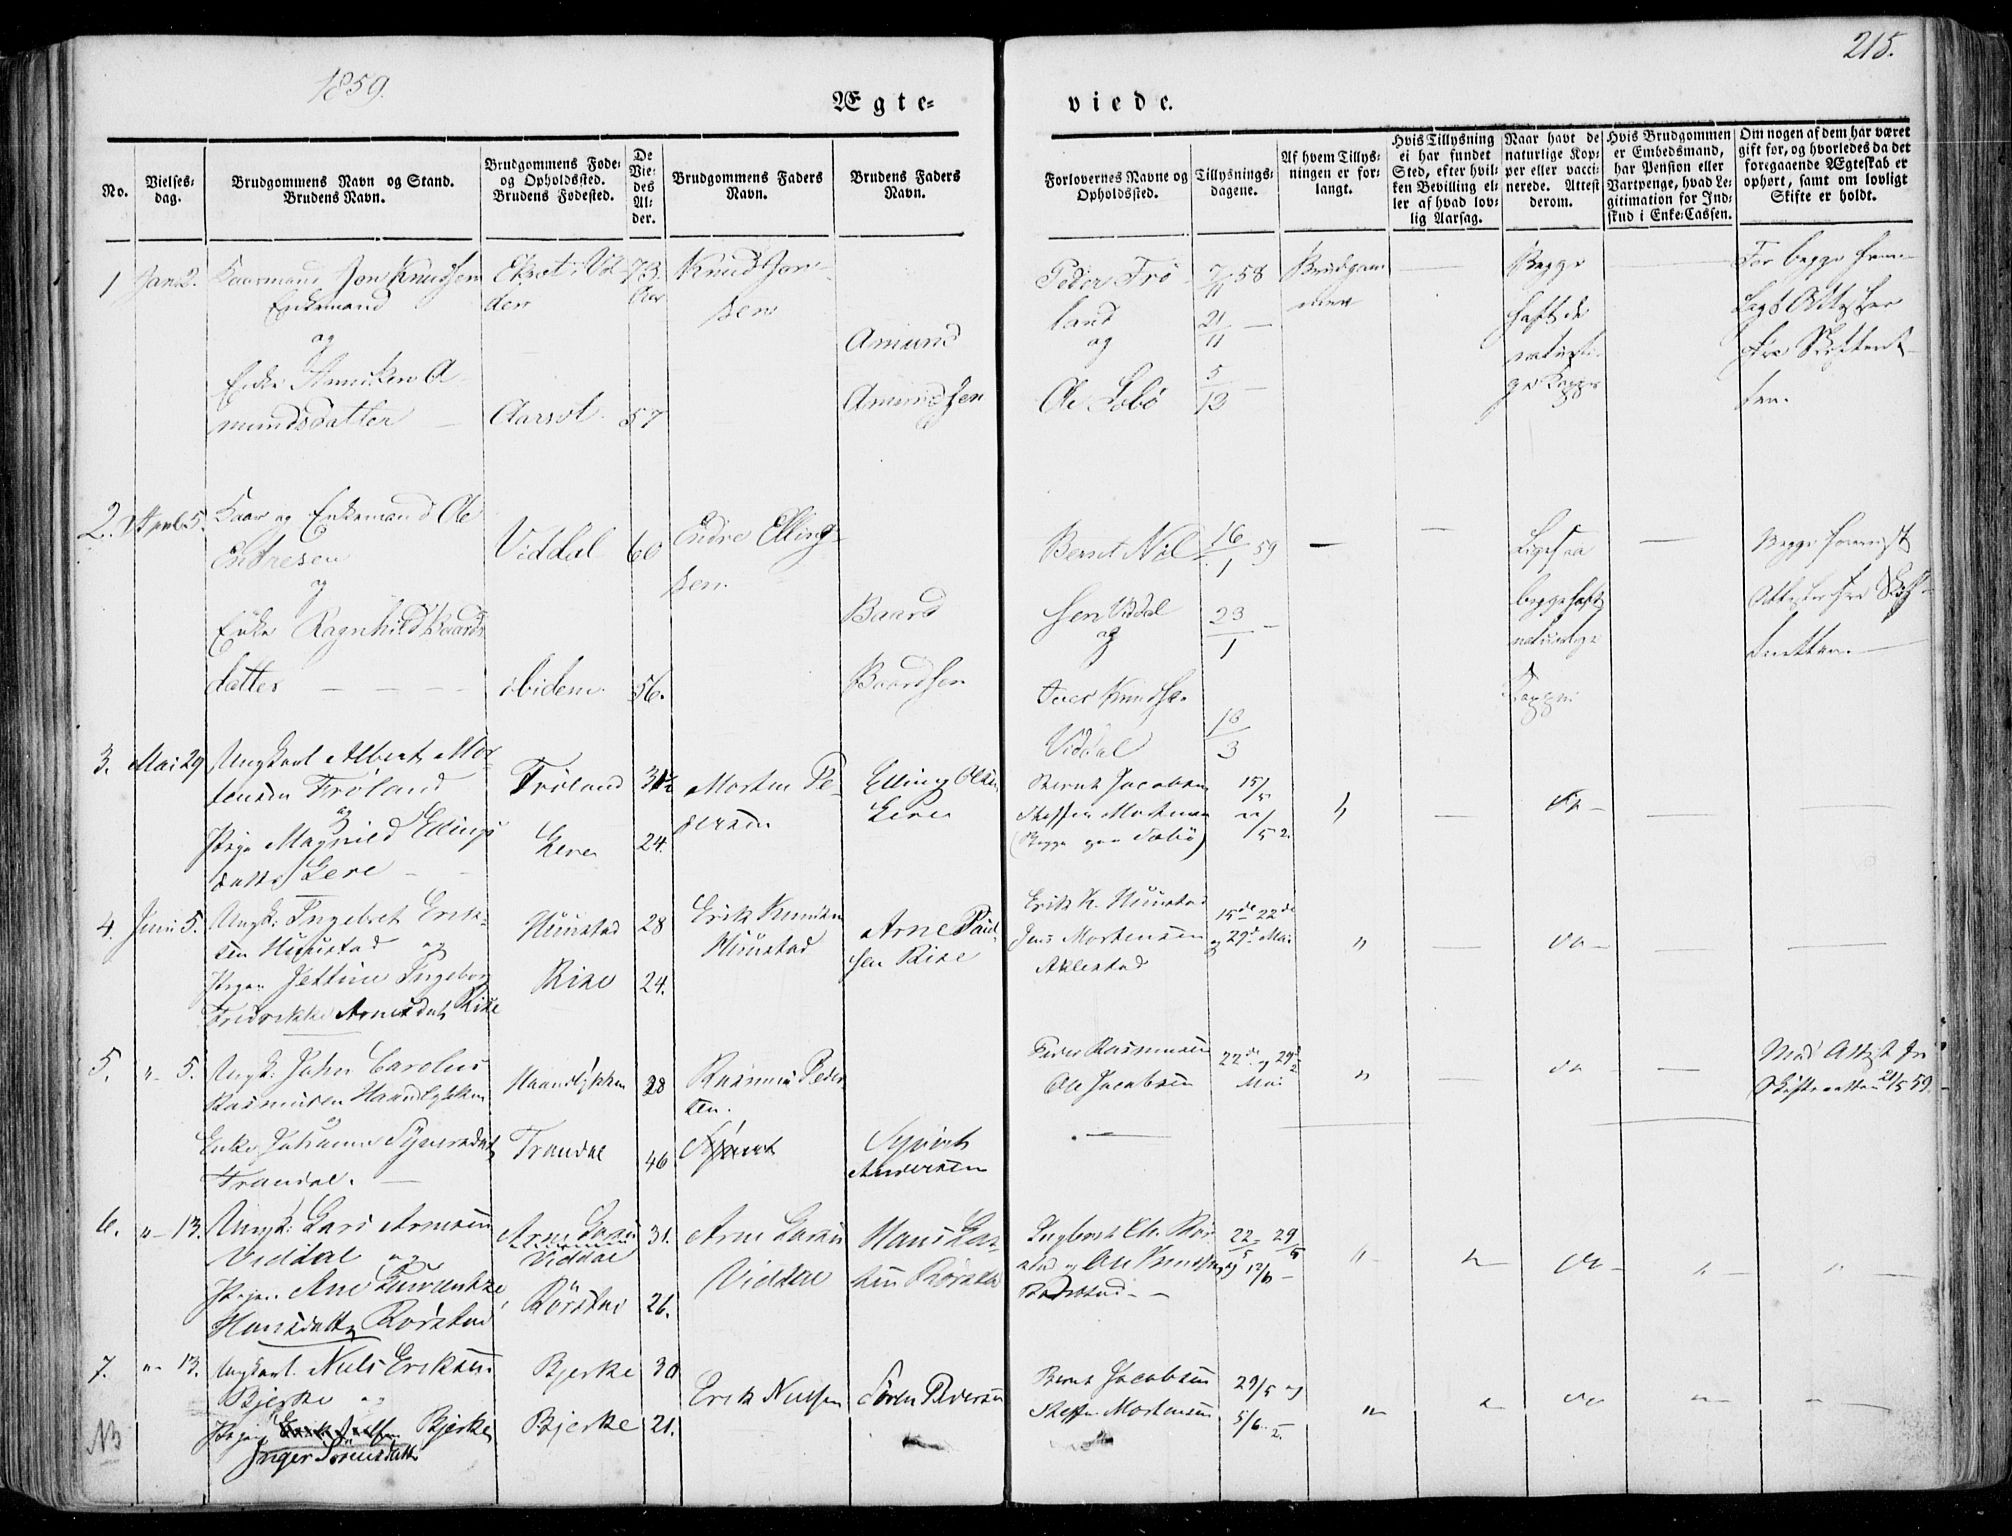 1859.
215.
Ægte-
viede.
No.
Vielses-
dag.
Brudgommens Navn og Stand.
Brudens Navn.
Brudgommens Føde-
og Opholdssted.
Brudens Fødested.
De
Vie-
des
Al-
der.
Brudgommens Faders
Navn.
Brudens Faders
Navn.
Forlovernes Navne og
Opholdssted.
Tillysnings-
dagene.
Af hvem Tillys-
ningen er for-
langt.
Hvis Tillysning
ei har fundet
Sted, efter hvil-
ken Bevilling el-
ler af hvad lov-
lig Aarsag.
Naar havt de
naturlige Kop-
per eller vacci-
nerede. Attest
derom.
Hvis Brudgommen
er Embedsmand,
har Pension eller
Vartpenge, hvad Le-
gitimation for Ind-
skud i Enke-Cassen.
Om nogen af dem har været
gift før, og hvorledes da det
foregaaende Ægteskab er
ophørt, samt om lovligt
Skifte er holdt.
1 Jan 2. Kaarmand Jon Knudsen
Enkemand
og
Enke A-
mundsdatter
73
Aar
Aarset 57
Knud Jon-
sen
Amund
Amundsen
Peder Frø
land
og
Ole Sobø
7/11 58
21/11
5/12
Brudgom
men
Begge
haft de
naturli-
ge Kopper
For begge frem-
lagt Attester
fra Skifteret-
ten.
2. April 5. Kaar og Enkemand Ole
Endresen
og
Enke Ragnhild Baards
datter
Viddal 60
ibidem. 56.
Endre Elling-
sen.
Baard
Baardsen
Bernt Nil
sen Viddal
og
Iver Knudse.
Viddal
16/1 59
23/1
13/3
Ligesaa
begge haft
naturlige
Kopper
Begge forevist
Attester fra Skif-
teretten.
3. Mai 29 Ungkarl Albert Mor
tensen Frøland
og
Pige Magnild Ellings
datter Lere
Frøland 31½
Lere 24.
Morten Pe-
dersen
Elling Olsen
Lere
Bernt Jacobsen
Steffen Mortensen
(Begge paa Sæbø)
15/5
22/5 2.
"
do
4. Juni 5. Ungk: Ingebret Erik-
sen Hunstad og
Pigen Jettine Ingeborg
Fredrikke Arnesdat. Rise
Hunstad 28
Rise 24.
Erik Knudsen
Hunstad
Arne Paul
sen Rise
Erik K. Hunstad
Jens Mortensen
Aklestad
15de 22de
og 29d Mai
"
do
5. " 5. Ungk: John Carolus
Rasmusen Haandlykken
og
Enke Johanne Syversdat
Trandal.
Haandlykken 28
Trandal 46
Rasmus Peder
sen.
Syvert
Andersen
Peder Rasmusen
Ole Jacobsen
22de og 29d
Mai
"
do
Med Attest fra
Skifteretten 21/5 59.
6. " 13. Ungk: Lars Arnesen
Viddal og
Pigen Ane Laurentze
Hansdatter Rørstad
Arne Larsen
Viddal 31.
Rørstad 26.
Arne Larsen
Viddal
Hans Lar-
sen Rørstad
Ingebret El. Rør
stad og Ole Knudsen
Rørstad
22/5 29/5
og 12/6
"
do
"
"
7. " 13. Ungkarl. Niels Eriksen
Bjerke og
Pigen Bjerke
Inger Sørensdatter
NB
Bjerke 30
Bjerke 21.
Erik Nielsen
Søren Pedersen
Bernt Jacobsen
Steffen Mortensen
29/5 og
5/6 2.
"
do